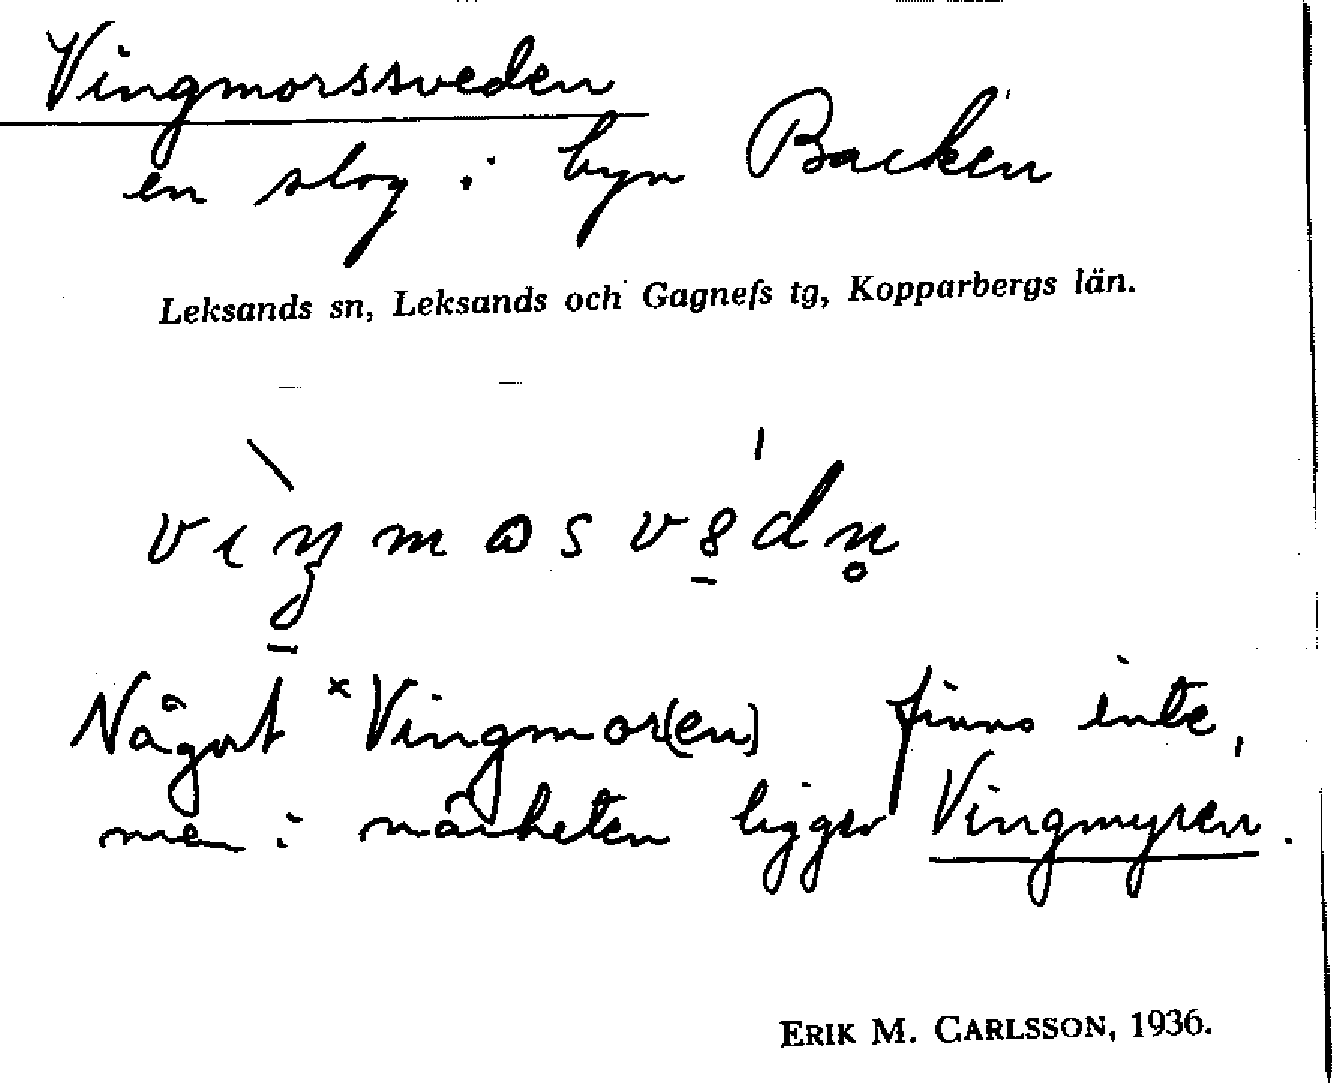 Vingmorssveden
en slog i byn Backen
Leksands sn, Leksands och Gagnefs tg, Kopparbergs län.
Något ˣVingmor(en) finns inte,
men i närheten ligger Vingmyren.
ERIK M. CARLSSON, 1936.